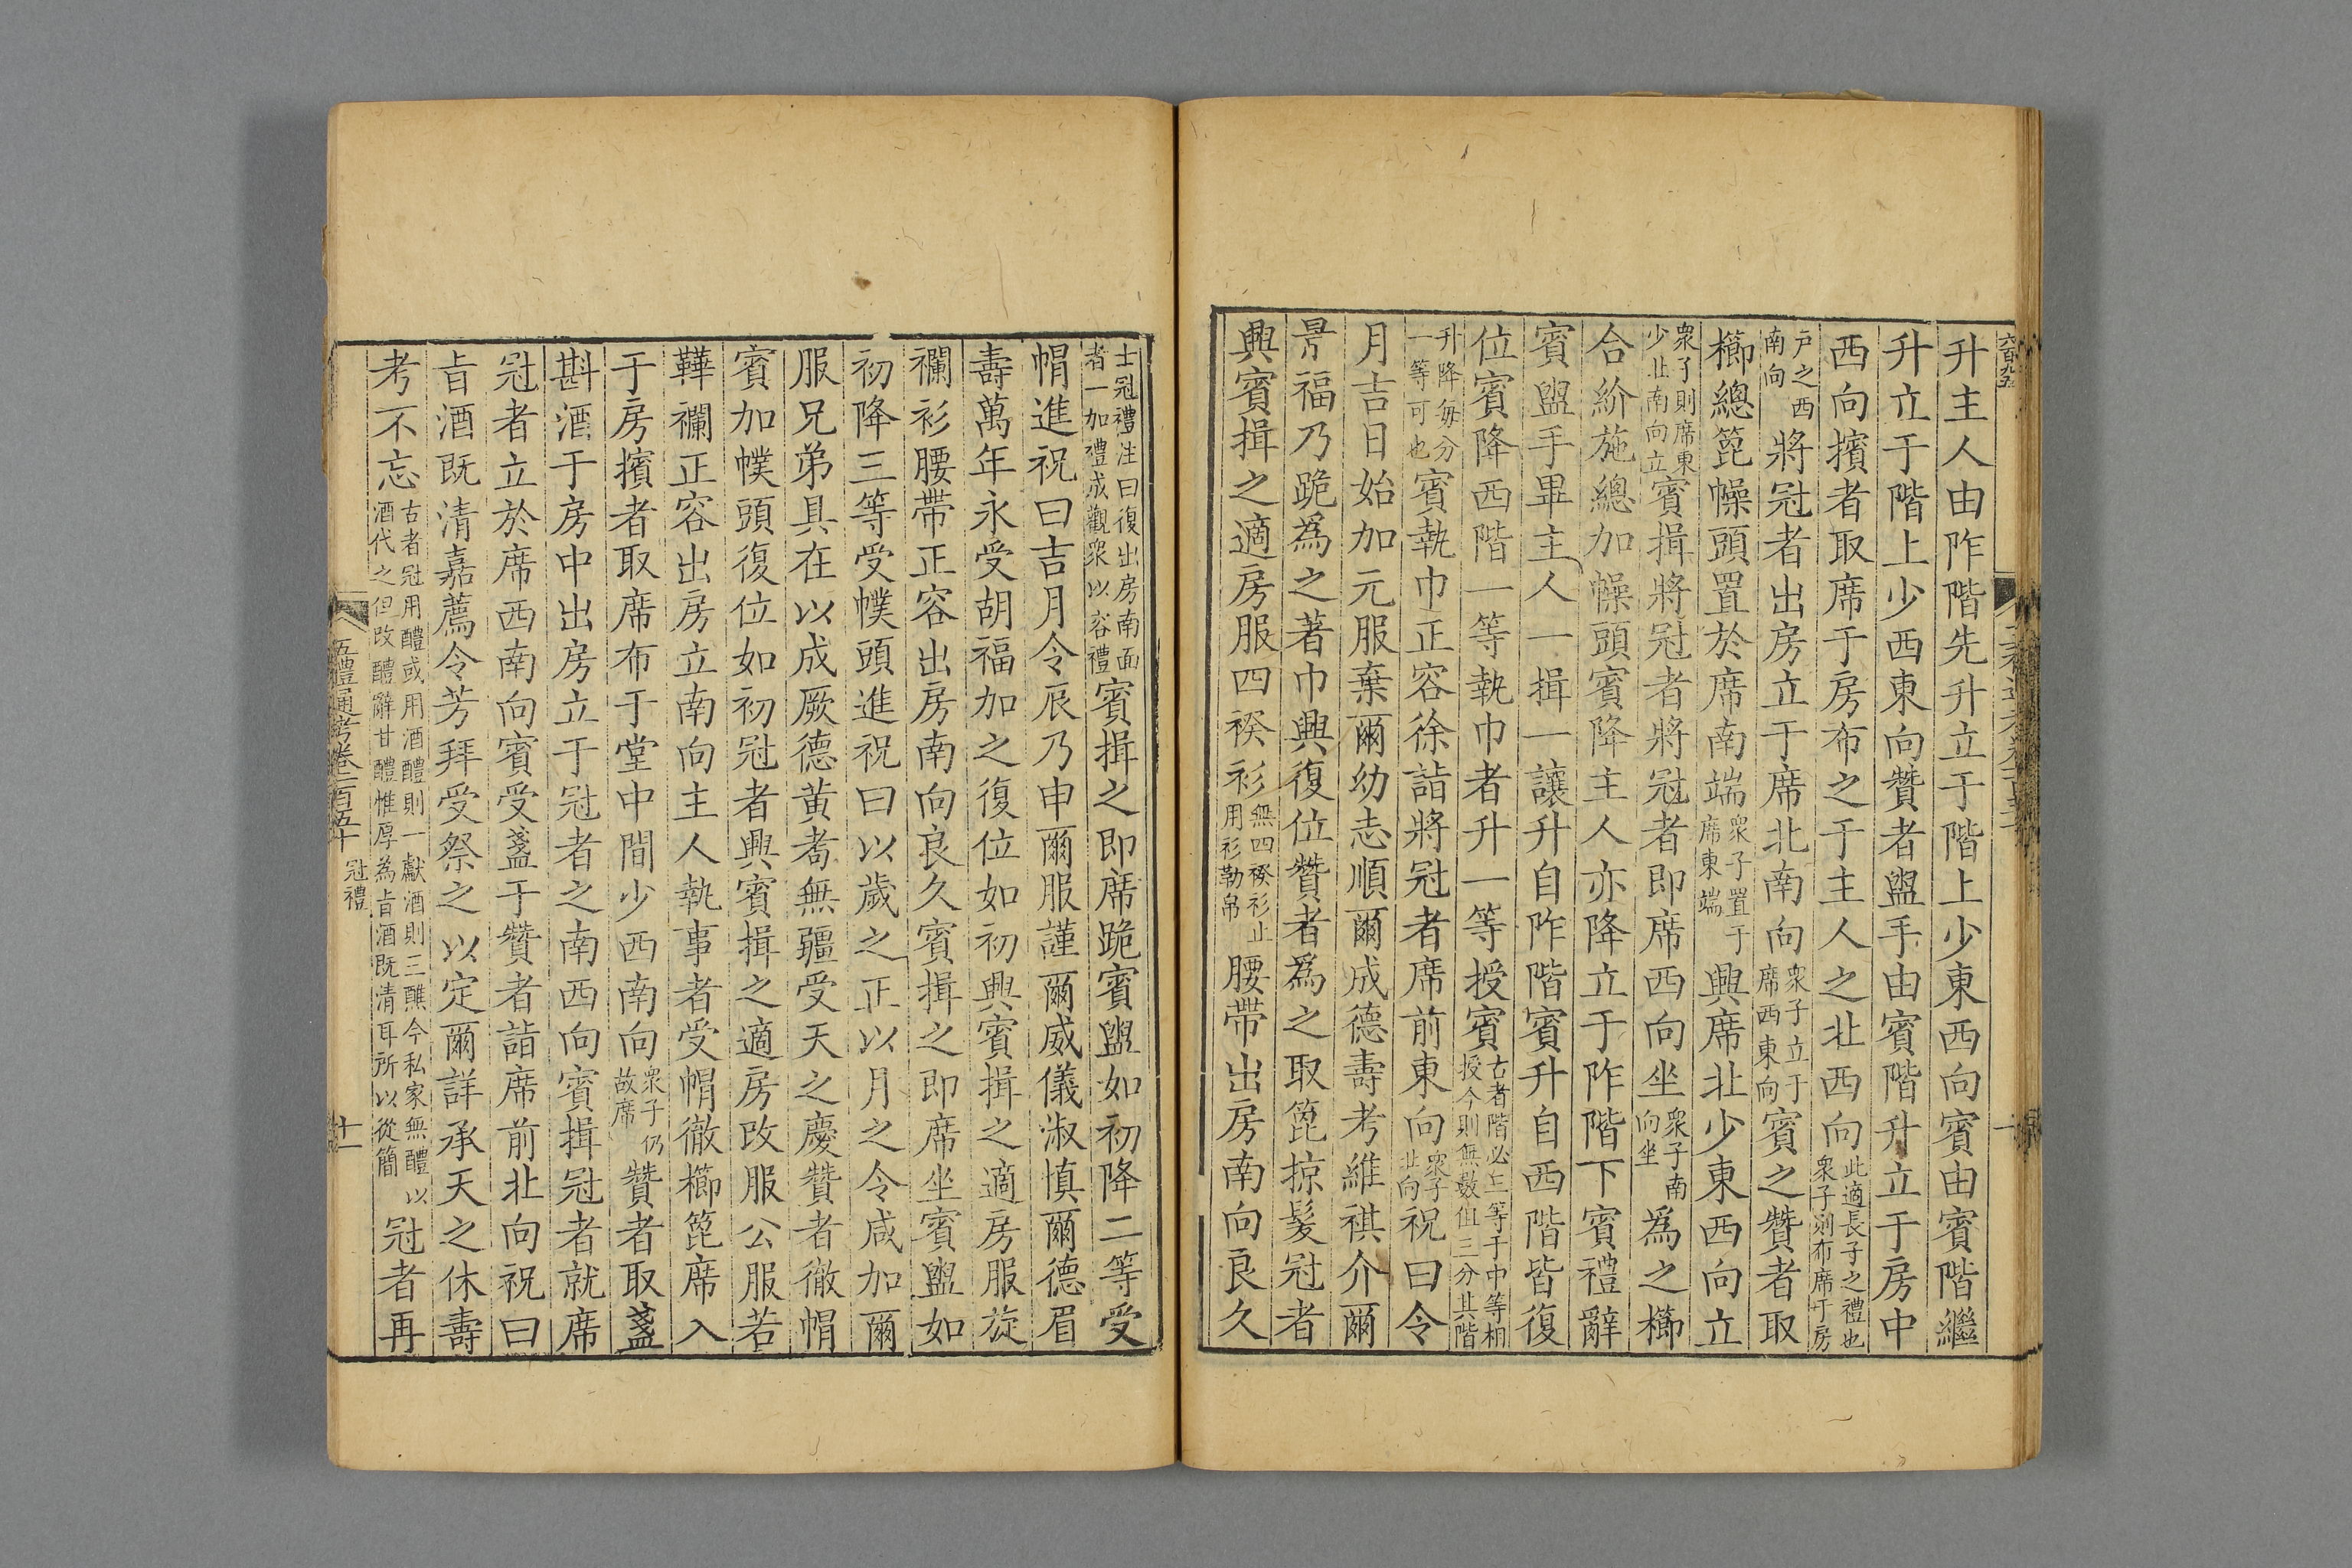 六百九五
升主人由阼階先升立于階上少東西向賓由賓階繼
升立于階上少西東向贊者盥手由賓階升立于房中
西向擯者取席于房布之于主人之北西向此適長子之禮也衆子則布席于房
戶之西南向將冠者出房立于席北南向衆子立于席西東向賓之贊者取
櫛總箆幧頭置於席南端衆子置于席東端興席北少東西向立
衆子則席東少北南向立賓揖將冠者將冠者即席西向坐衆子南向坐為之櫛
合紒施總加幧頭賓降主人亦降立于阼階下賓禮辭
賓盥手畢主人一揖一讓升自阼階賓升自西階皆復
位賓降西階一等執巾者升一等授賓古者階必三等于中等相授今則無數但三分其階
升降每分一等可也賓執巾正容徐詣將冠者席前東向衆子北向祝曰令
月吉日始加元服棄爾幼志順爾成德壽考維祺介爾
景福乃跪爲之著巾興復位贊者爲之取箆掠髮冠者
興賓揖之適房服四䙆衫無四䙆衫止用衫勒帛腰帶出房南向良久
士冠禮注曰復出房南面者一加禮成觀衆以容禮賓揖之即席跪賓盥如初降二等受
帽進祝曰吉月令辰乃申爾服謹爾威儀淑慎爾德眉
壽萬年永受胡福加之復位如初興賓揖之適房服旋
襴衫腰帶正容出房南向良久賓揖之即席坐賓盥如
初降三等受幞頭進祝曰以歲之正以月之令咸加爾
服兄弟具在以成厥德黃耉無疆受天之慶贊者徹帽
賓加幞頭復位如初冠者興賓揖之適房改服公服若
鞾襴正容出房立南向主人執事者受帽徹櫛箆席入
于房擯者取席布于堂中間少西南向衆子仍故席贊者取盞
斟酒于房中出房立于冠者之南西向賓揖冠者就席
冠者立於席西南向賓受盞于贊者詣席前北向祝曰
旨酒既清嘉薦令芳拜受祭之以定爾詳承天之休壽
考不忘古者冠用醴或用酒醴則一獻酒則三醮今私家無醴以酒代之但改醴辭甘醴惟厚為旨酒既清耳所以從簡冠者再
五禮通考卷一百五十 冠禮 十一